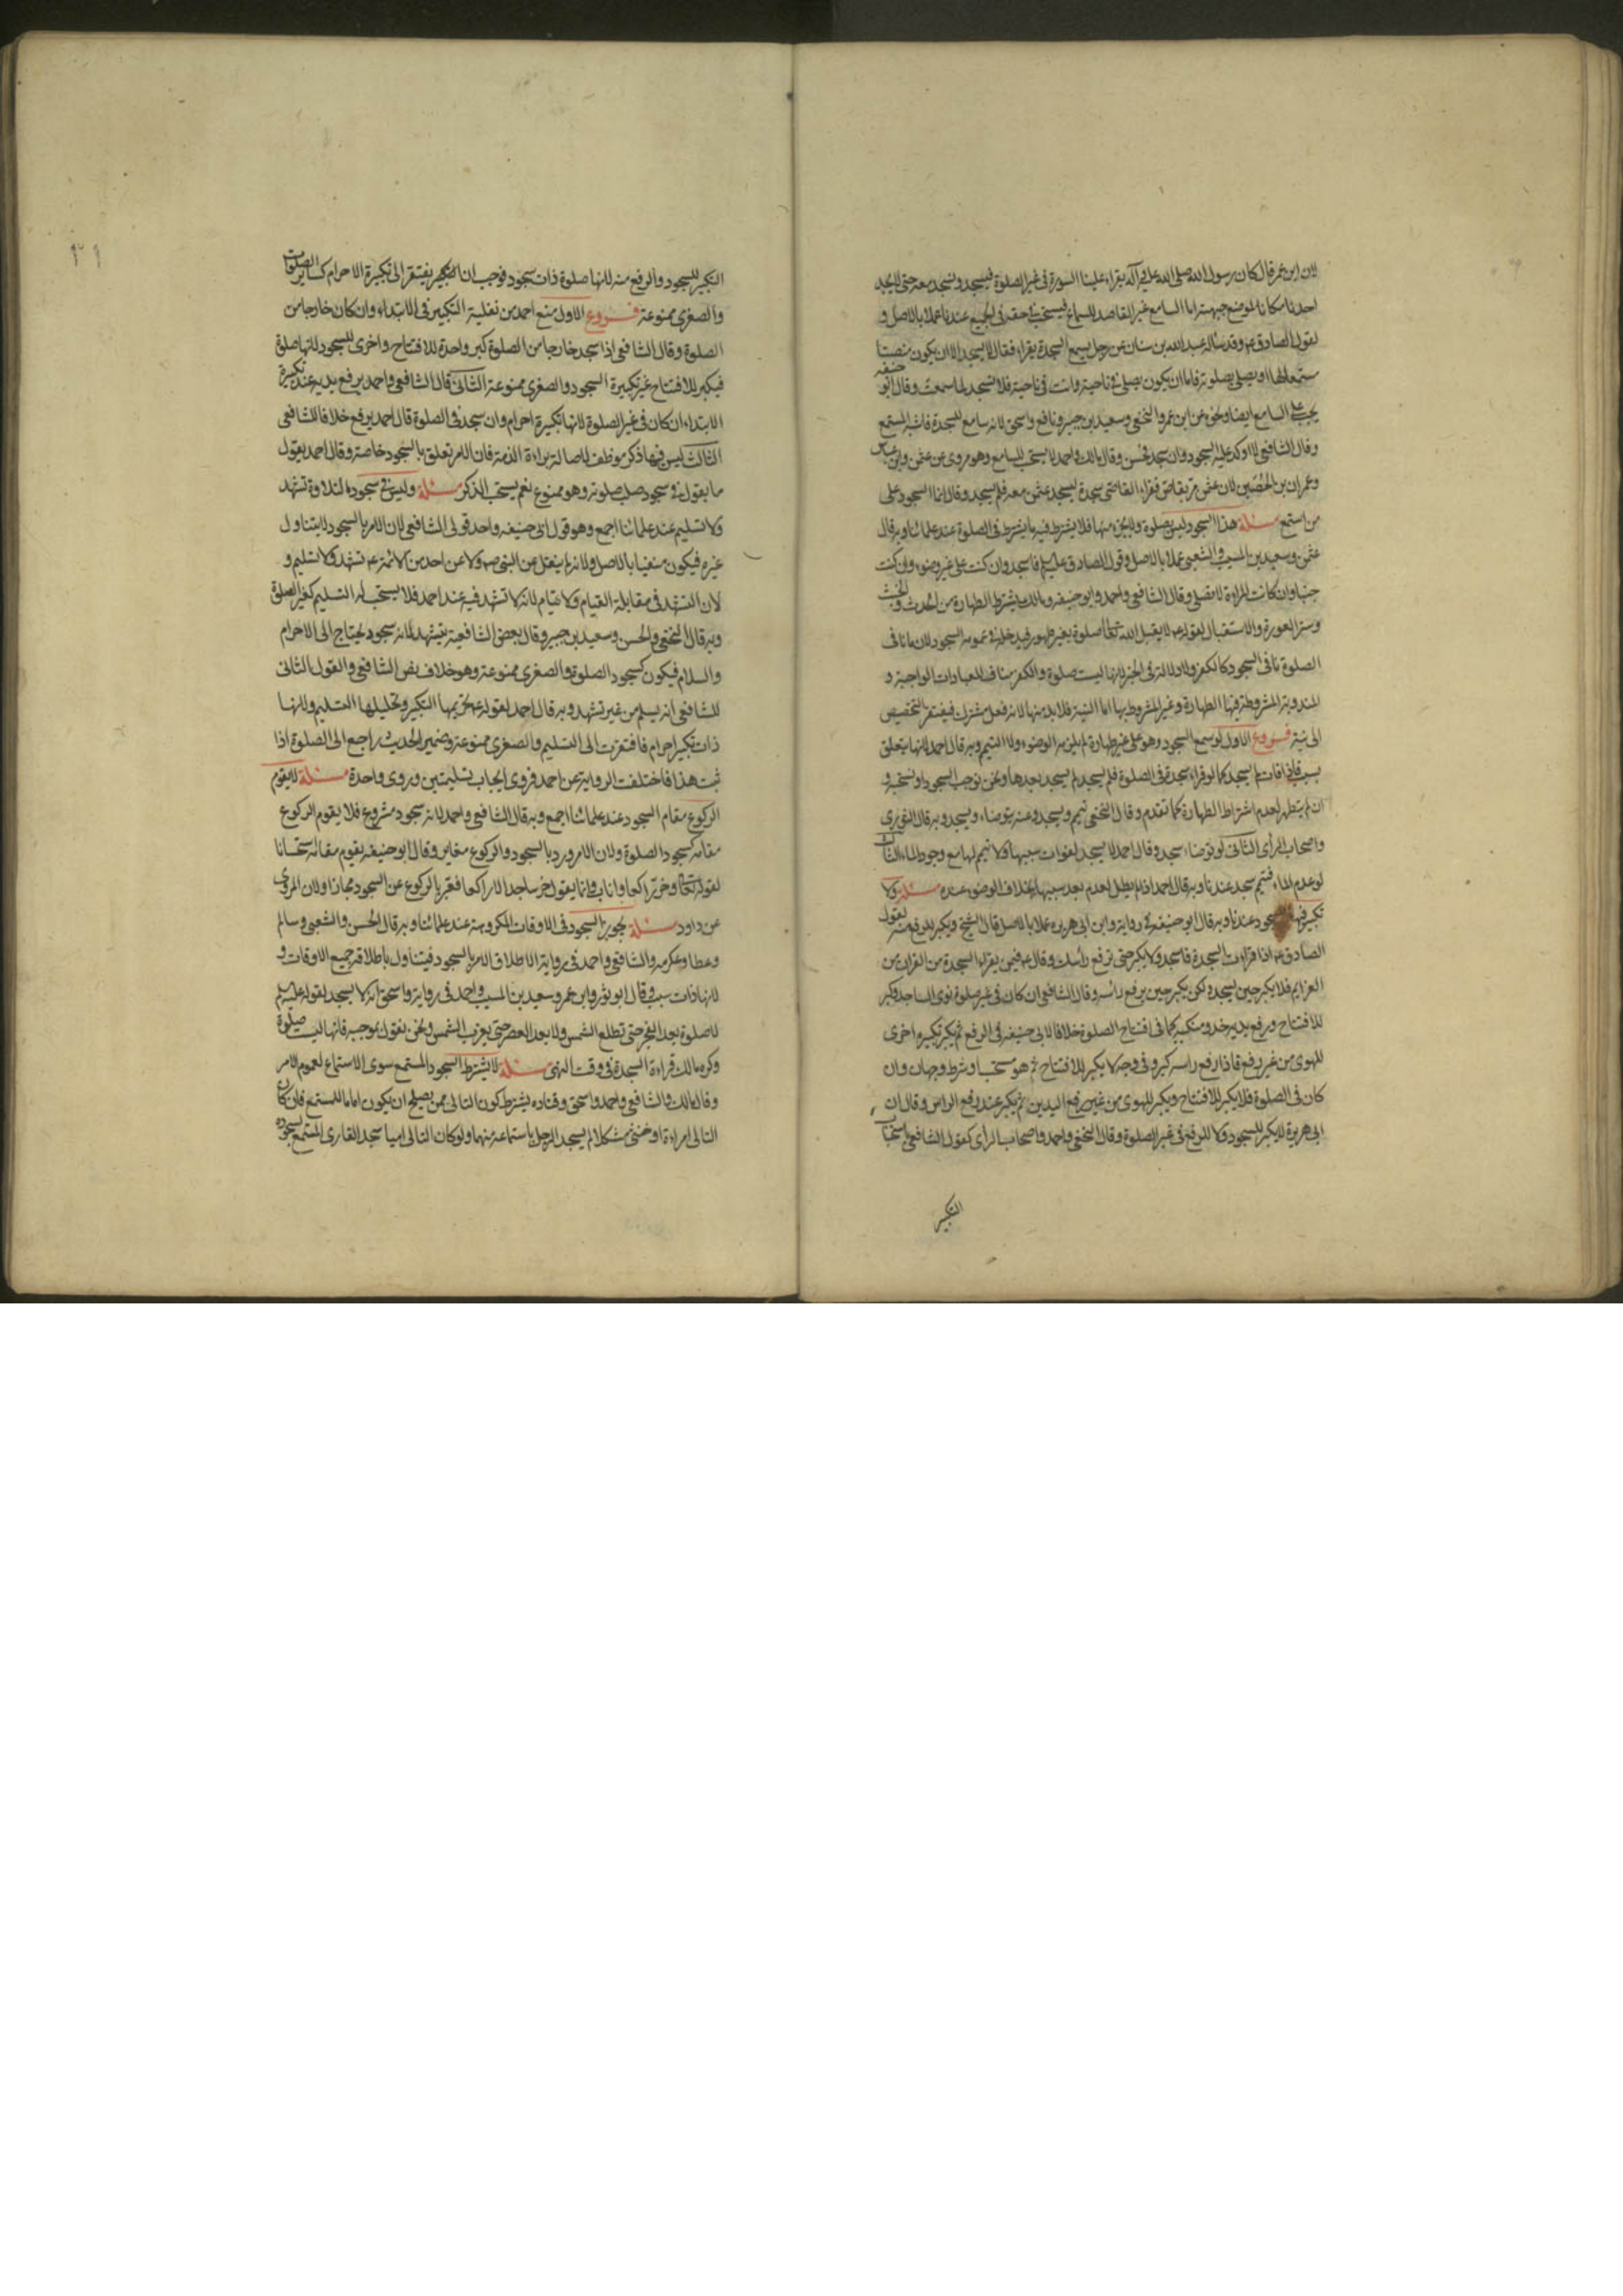 لان ابن عمر قال كان رسول الله صلى الله عليه وآله يقراء علينا السورة فى غير الصلوة فيسجد ونسجد معه حتى لا يجد
احدنا مكانا لموضع جبهته اما السامع غير القاصد للسماع فيستحب فى حقه فى الجميع عندنا عملا بالاصل و
لقول الصادق ع وقد ساله عبدالله بن سنان عن رجل يسمع السجدة يقراء فقال لا يسجد الا ان يكون منصتا
مستمعا لها او يصلى بصلوته فاما ان يكون يصلى فى ناحية وانت فى ناحية فلا تسجد لما سمعت وقال ابو حنيفه
يجب على السامع ايضا ونحوه عن ابن عمر والنخعى وسعيد بن جبير ونافع واسحق لانه سامع للسجدة فاشبه المستمع
وقال الشافعى لا اوكد عليه السجود وان سجد فحسن وقال مالك واحمد لا يستحب للسامع وهو مروى عن عثمن وابن عباس
وعمران بن الحصين لان عثمن مر بقاص فقراء القاص سجدة ليسجد عثمن معه فلم يسجد وقال انما السجود على
من استمع مسئلة هذا السجود ليس بصلوة ولا بجزء منها فلا يشترط فيه ما يشترط فى الصلوة عند علمائنا وبه قال
عثمن وسعيد بن المسيب والشعبى عملا بالاصل وقول الصادق عليه السلم فاسجد وان كنت على غير وضوء وان كنت
جنبا وان كانت المراءة لا تصلى وقال الشافعى واحمد وابو حنيفه ومالك يشترط الطهارة من الحدث والخبث
وستر العورة والاستقبال لقوله ع لا يقبل الله تعالى صلوة بغير طهور فيدخل فى عمومه السجود لان ما نافى
الصلوة نافى السجود كالكفر ولا دلالة فى الخبر لانها ليست صلوة والكفر مناف للعبادات الواجبة و
المندوبة المشروطة فيها الطهارة وغير المشروط بها اما النية فلا بد منها لانه فعل مشترك فيفتقر التخصيص
الى نية فروع الاول لو سمع السجود وهو على غير طهارة لم يلزمه الوضوء ولا التيمم وبه قال احمد لانها يتعلق
بسبب فاذا فات لم يسجد كما لو قراء سجدة فى الصلوة فلم يسجد لم يسجد بعدها ونحن نوجب السجود او نستحبه و
ان لم يتطهر لعدم اشتراط الطهارة كما تقدم وقال النخعى تيمم ويسجد وعنه يتوضاء ويسجد وبه قال الثورى
واصحاب الراى الثانى لو توضاء سجد وقال احمد لا يسجد لفوات سببها ولا تيمم لها مع وجود الماء الثالث
لو عدم الماء فتيمم سجد عندنا وبه قال احمد اذا لم يطل لعدم بعد سببها بخلاف الوضوء عنده مسئلة ولا
تكبير فيها السجود عندنا وبه قال ابو حنيفه فى رواية وابن ابى هريرة عملا بالاصل قال الشيخ ويكبر للرفع منه لقول
الصادق ع اذا قراءت السجدة فاسجد ولا يكبر حتى ترفع راسك وقال ع فيمن يقراء السجدة من القران من
العزايم فلا يكبر حين يسجد ولكن يكبر حين يرفع راسه وقال الشافعى ان كان فى غير صلوة نوى الساجد وكبر
للافتتاح ورفع يديه حذو منكبيه كما فى افتتاح الصلوة خلافا لابى حنيفه فى الرفع ثم يكبر تكبيرة اخرى
للهوى من غير رفع فاذا رفع راسه كبر وفى وجه لا يكبر للافتتاح ثم هو مستحب او شرط وجهان وان
كان فى الصلوة فلا يكبر للافتتاح ويكبر للهوى من غير رفع اليدين ثم يكبر عند رفع الراس وقال ابن
ابى هريرة لا يكبر للسجود ولا للرفع فى غير الصلوة وقال النخعى واحمد واصحاب الراى كقول الشافعى باستحباب
التكبير
١٢٩
التكبير للسجود والرفع منه لانها صلوة ذات سجود فوجب ان يفتقر الى تكبيرة الاحرام كساير الصلوات
والصغرى ممنوعة فروع الاول منع احمد من نفلية التكبير فى الابتداء وان كان خارجا من
الصلوة وقال الشافعى اذا سجد خارجا من الصلوة كبر واحدة للافتتاح واخرى للسجود لانها صلوة
فيكبر للافتتاح غير تكبيرة السجود والصغرى ممنوعة الثانى قال الشافعى واحمد يرفع يديه عند تكبيرة
الابتداء ان كان فى غير الصلوة لانها تكبيرة احرام وان سجد فى الصلوة قال احمد يرفع خلافا للشافعى
الثالث ليس فيها ذكر موظف لاصالة براءة الذمة فان الامر تعلق بالسجود خاصة وقال احمد يقول
ما يقول فى سجود صلب صلوته وهو ممنوع نعم يستحب الذكر مسئلة وليس فى سجود التلاوة تشهد
ولا تسليم عند علمائنا اجمع وهو قول ابى حنيفه واحد قولى الشافعى لان الامر بالسجود لا يتناول
غيره فيكون منفيا بالاصل ولانه لم ينقل عن النبى ص ولا عن احد من الائمة ع تشهد ولا تسليم و
لان التشهد فى مقابلة القيام ولا قيام لانه لا تشهد فيه عند احمد فلا يستحب له التسليم كغير الصلوة
وبه قال النخعى والحسن وسعيد بن جبير وقال بعض الشافعية يتشهد لانه سجود يحتاج الى الاحرام
والسلام فيكون كسجود الصلوة والصغرى ممنوعة وهو خلاف نص الشافعى والقول الثانى
للشافعى انه يسلم من غير تشهد وبه قال احمد لقوله ع تحريمها التكبير وتحليلها التسليم ولانها
ذات تكبير احرام فافتقرت الى التسليم والصغرى ممنوعة وضمير الحديث راجع الى الصلوة اذا
ثبت هذا فاختلفت الرواية عن احمد فروى ايجاب تسليمتين وروى واحدة مسئلة لا يقوم
الركوع مقام السجود عند علمائنا اجمع وبه قال الشافعى واحمد لانه سجود مشروع فلا يقوم الركوع
مقامه كسجود الصلوة ولان الامر ورد بالسجود والركوع مغاير وقال ابو حنيفه يقوم مقامه استحسانا
لقوله تعالى وخر راكعا واناب وانما يقول خر ساجدا لا راكعا فعبر بالركوع عن السجود مجازا ولان المروى
عن داود مسئلة يجوز السجود فى الاوقات المكروهة عند علمائنا وبه قال الحسن والشعبى وسالم
وعطا وعكرمه والشافعى واحمد فى رواية لاطلاق الامر بالسجود فيتناول باطلاقه جميع الاوقات و
لانها ذات سبب وقال ابو ثور وابن عمر وسعيد بن المسيب واحمد فى رواية واسحق انه لا يسجد لقوله عليه السلم
لا صلوة بعد الفجر حتى تطلع الشمس ولا بعد العصر حتى يغرب الشمس ونحن نقول بموجبه فانها ليست صلوة
وكره مالك قراءة السجدة فى وقت النهى مسئلة لا يشترط السجود المستمع سوى الاستماع لعموم الامر
وقال مالك والشافعى واحمد واسحق وقتاده يشترط كون التالى ممن يصلح ان يكون اماما للمستمع فان كان
التالى امراءة او خنثى مشكلا لم يسجد الرجل باستماعه منهما ولو كان التالى اميا سجد القارى المستمع بسجوده